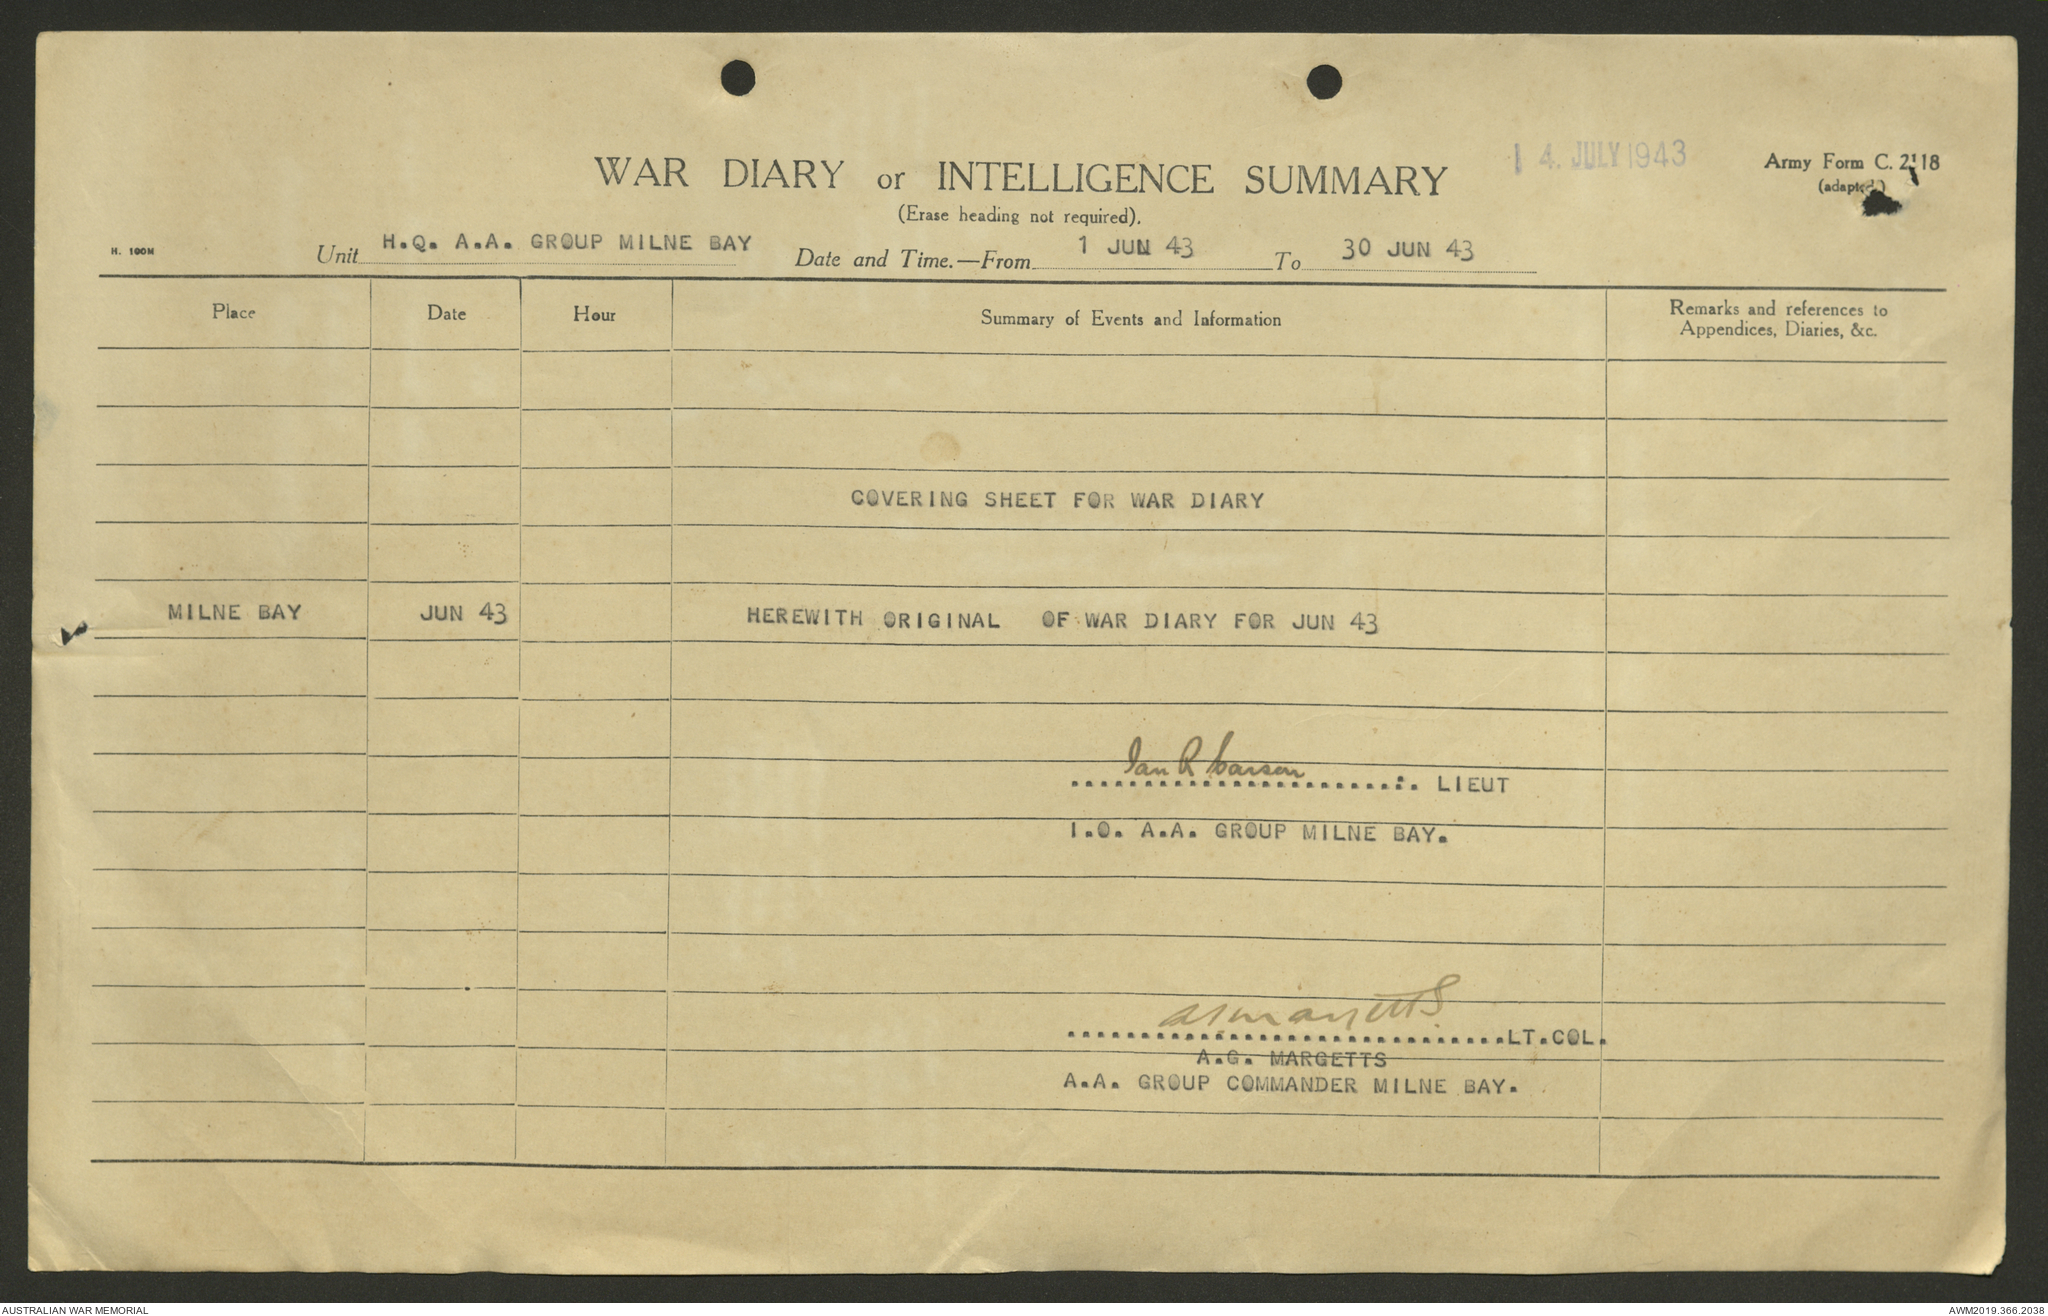 14. JULY 1943
Army Form C. 2118
(adapted)
WAR DIARY or INTELLIGENCE SUMMARY
(Erase heading not required).
H. 100M
Unit H.Q. A.A. GROUP MILNE BAY Date and Time.—From 1 JUN 43 To 30 JUN 43
Place Date Hour Summary of Events and Information Remarks and references to
Appendices, Diaries, &c.
COVERING SHEET FOR WAR DIARY
MILNE BAY JUN 43 HEREWITH ORIGINAL OF WAR DIARY FOR JUN 43
Ian R Carson
LIEUT
I.O. A.A. GROUP MILNE BAY.
AGMargetts
LT.COL.
A.G. MARGETTS
A.A. GROUP COMMANDER MILNE BAY.
AUSTRALIAN WAR MEMORIAL AWM2019.366.2038